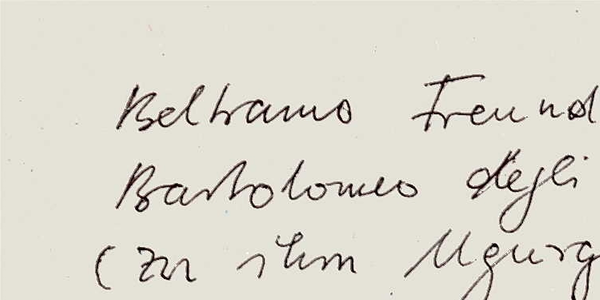 Beltramo Freund
Bartolomeo degli
(zu ihm Ugurg